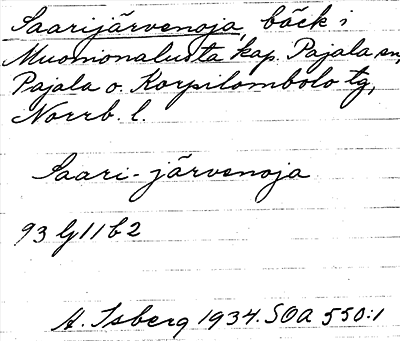 Saarijärvenoja, bäck i
Muonionalusta kap. Pajala sn,
Pajala o. Korpilombolo tg,
Norrb. l.
Saari-järvenoja
93 G 11 b 2
H. Isberg 1934. SOA 550:1